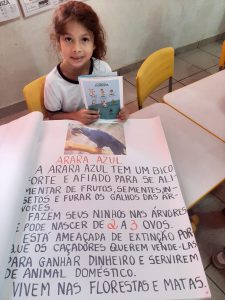 ARARA AZUL
A ARARA AZUL TEM UM BICO
FORTE E AFIADO PARA SE ALI-
MENTAR DE FRUTOS, SEMENTES, IN-
SETOS E FURAR OS GALHOS DAS ÁR-
VORES.
FAZEM SEUS NINHOS NAS ÁRVORES
E PODE NASCER DE 2 A 3 OVOS.
ESTÁ AMEAÇADA DE EXTINÇÃO, POR-
QUE OS CAÇADORES QUEREM VENDE-LAS
PARA GANHAR DINHEIRO E SERVIREM
DE ANIMAL DOMÉSTICO.
VIVEM NAS FLORESTAS E MATAS.